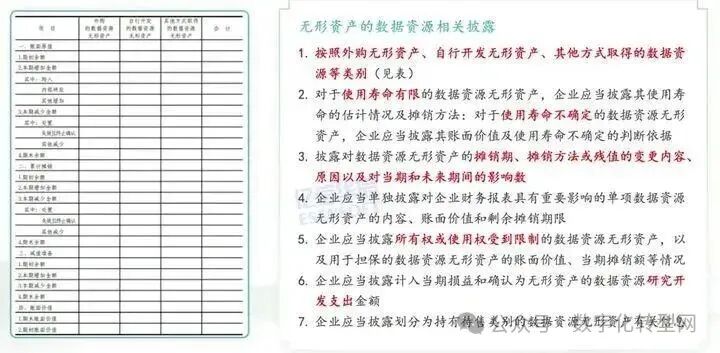 项 目 外购的数据资源无形资产 自行开发的数据资源无形资产 其他方式取得的数据资源无形资产 合 计
一、账面原值
1.期初余额
2.本期增加金额
其中：购入
内部研发
其他增加
3.本期减少金额
其中：处置
失效且终止确认
其他减少
4.期末余额
二、累计摊销
1.期初余额
2.本期增加金额
3.本期减少金额
其中：处置
失效且终止确认
其他减少
4.期末余额
三、减值准备
1.期初余额
2.本期增加金额
3.本期减少金额
4.期末余额
四、账面价值
1.期末账面价值
2.期初账面价值
无形资产的数据资源相关披露
1. 按照外购无形资产、自行开发无形资产、其他方式取得的数据资
源等类别（见表）
2. 对于使用寿命有限的数据资源无形资产，企业应当披露其使用寿
命的估计情况及摊销方法；对于使用寿命不确定的数据资源无形
资产，企业应当披露其账面价值及使用寿命不确定的判断依据
3. 披露对数据资源无形资产的摊销期、摊销方法或残值的变更内容、
原因以及对当期和未来期间的影响数
4. 企业应当单独披露对企业财务报表具有重要影响的单项数据资源
无形资产的内容、账面价值和剩余摊销期限
5. 企业应当披露所有权或使用权受到限制的数据资源无形资产，以
及用于担保的数据资源无形资产的账面价值、当期摊销额等情况
6. 企业应当披露计入当期损益和确认为无形资产的数据资源研究开
发支出金额
7. 企业应当披露划分为持有待售类别的数据资源无形资产有关信息
公众号 · 数字化转型网